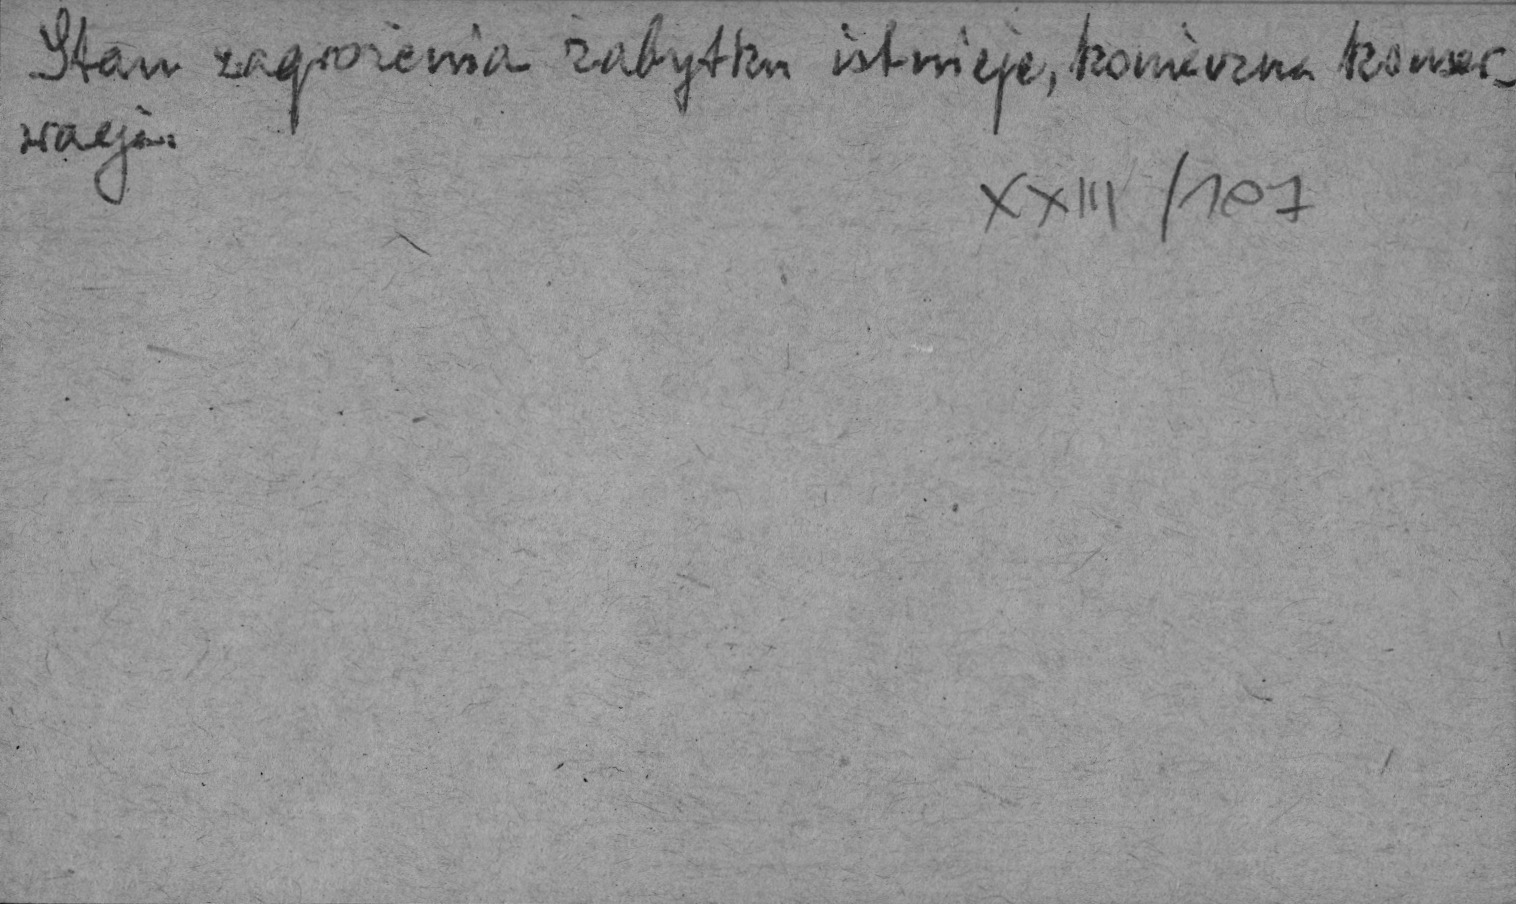 Stan zagrożenia zabytku istnieje, konieczna konser-
wacja.
XXIII/107